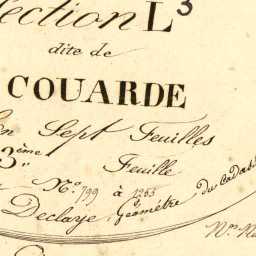 Section L³
dite de
COUARDE
En Sept Feuilles
3ème Feuille
No. 799 à 1263
Declaye, Géomètre du Cadas